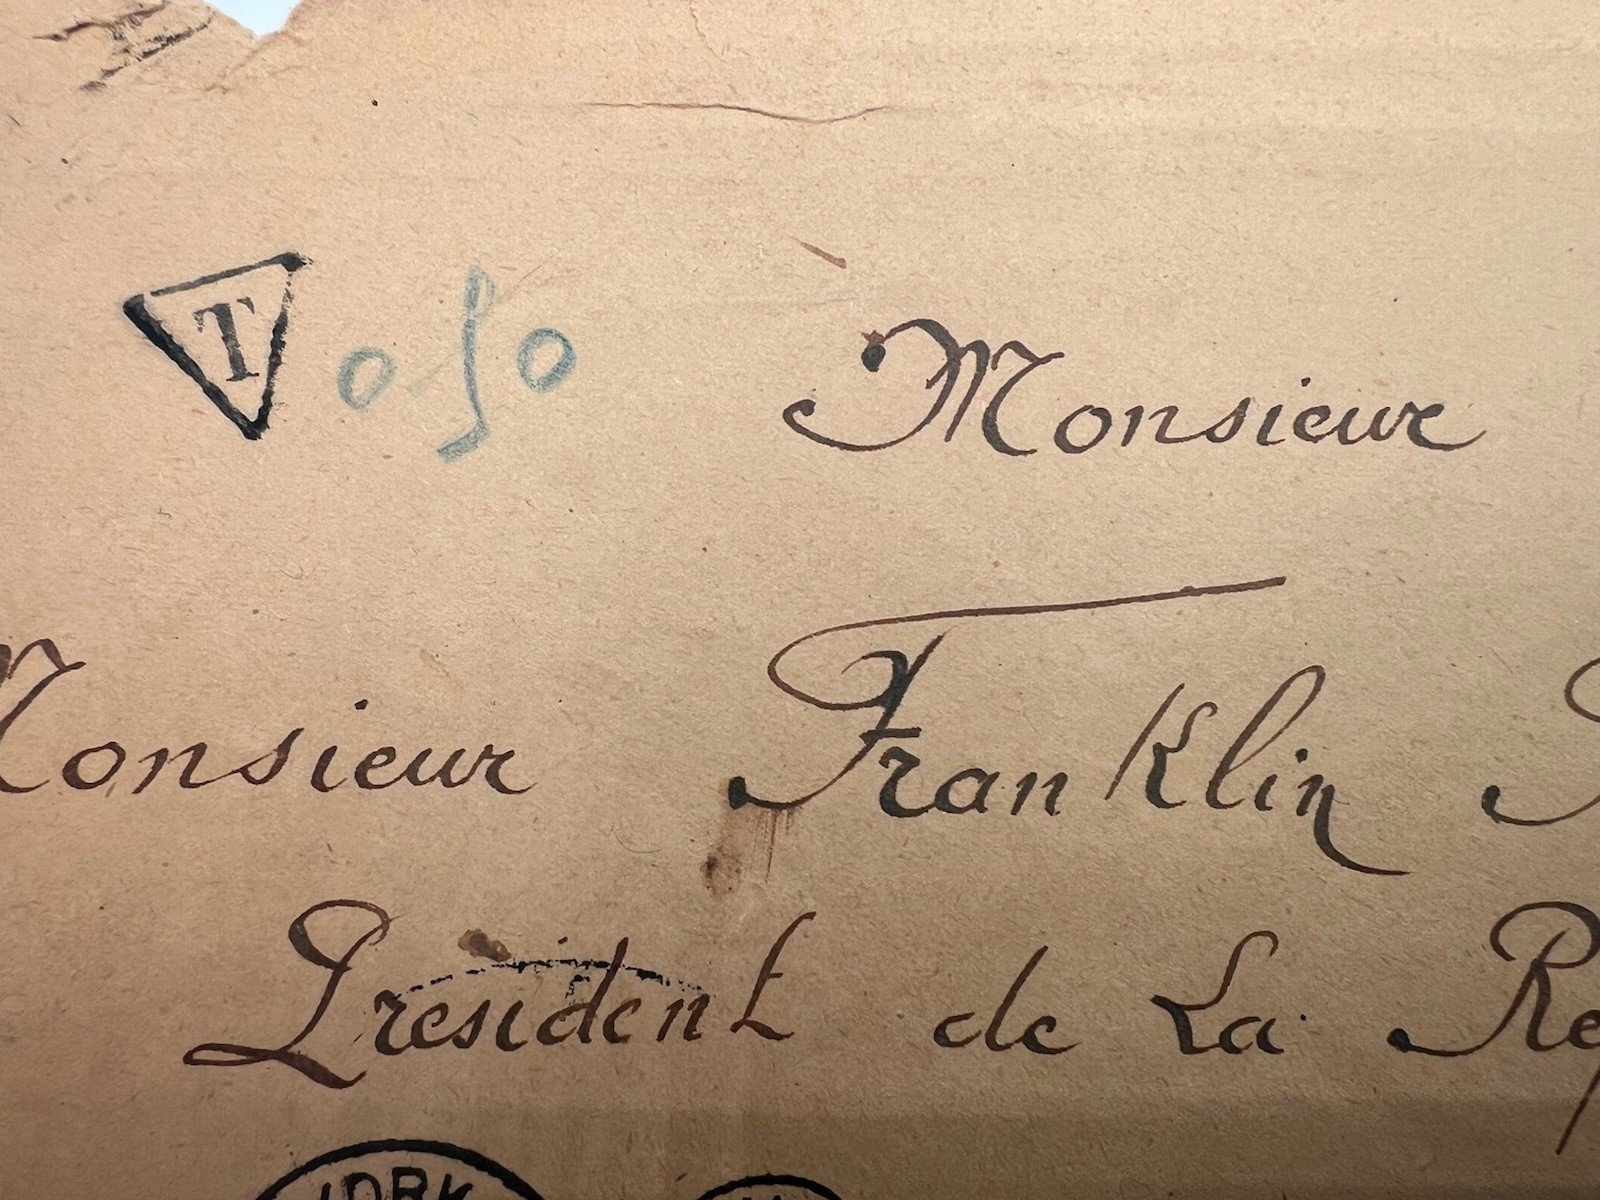 T 0 50 Monsieur
Monsieur Franklin
President de La